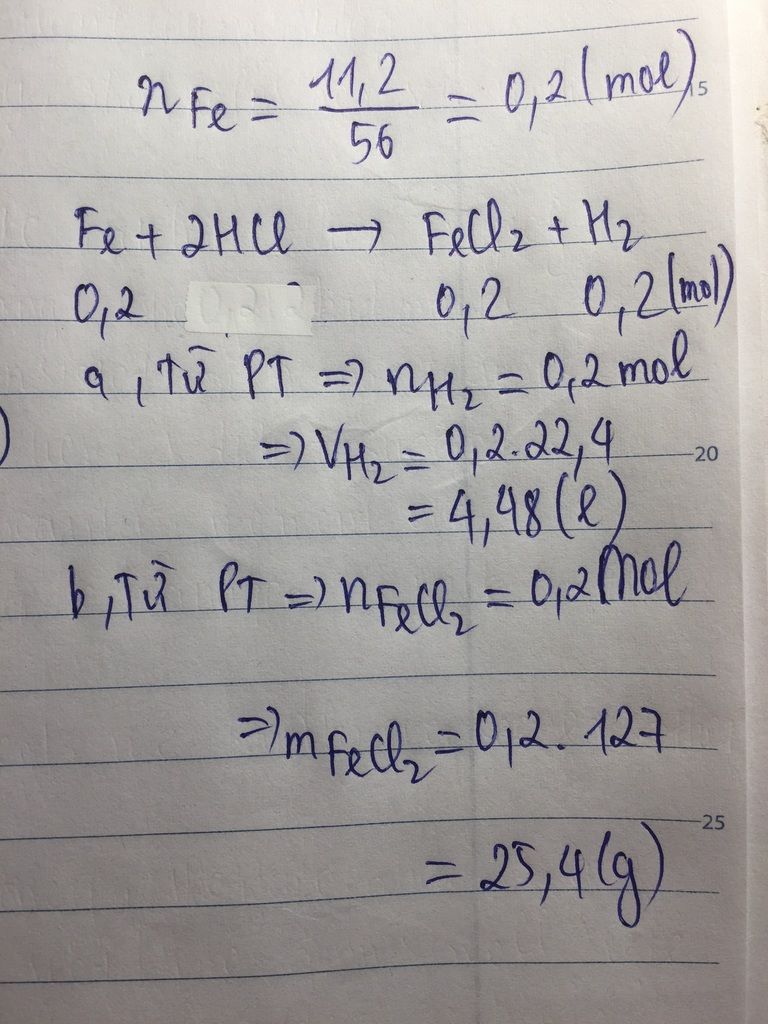 n Fe = 11,2/56 = 0,2 (mol)
15
Fe + 2HCl → FeCl₂ + H₂
0,2 0,2 0,2 (mol)
a, Từ PT => nH₂ = 0,2 mol
=> VH₂ = 0,2.22,4
20
= 4,48 (l)
b, Từ PT => nFeCl₂ = 0,2 mol
=> mFeCl₂ = 0,2. 127
25
= 25,4 (g)